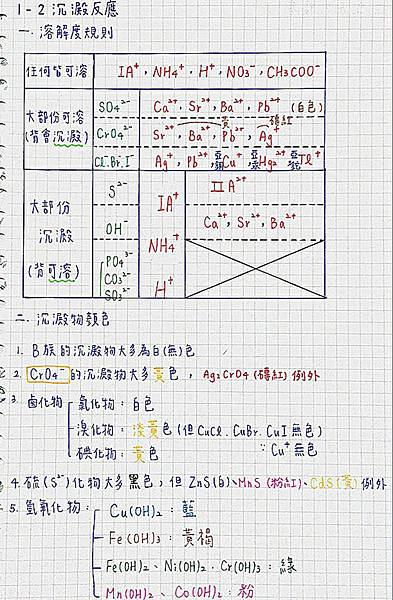 1-2 沉澱反應
一. 溶解度規則
任何皆可溶 IA⁺, NH4⁺, H⁺, NO3⁻, CH3COO⁻
大部份可溶 (背會沉澱)
SO4²⁻ Ca²⁺, Sr²⁺, Ba²⁺, Pb²⁺ (白色)
黃 磚紅
CrO4²⁻ Sr²⁺, Ba²⁺, Pb²⁺, Ag⁺
Cl⁻.Br⁻.I⁻ Ag⁺, Pb²⁺, 亞銅Cu⁺, 亞汞Hg2²⁺, 亞鉈Tl⁺
大部份
沉澱
(背可溶)
S²⁻ IIA²⁺
OH⁻ Ca²⁺, Sr²⁺, Ba²⁺
PO4³⁻
CO3²⁻
SO3²⁻
IA⁺
NH4⁺
H⁺
二. 沉澱物顏色
1. B族的沉澱物大多為白(無)色
2. CrO4⁻的沉澱物大多黃色, Ag2CrO4(磚紅)例外
3. 鹵化物 氯化物: 白色
溴化物: 淡黃色 (但CuCl. CuBr. CuI 無色)
碘化物: 黃色 ∵Cu⁺無色
4. 硫(S²⁻)化物大多黑色, 但ZnS(白)、MnS(粉紅)、CdS(黃)例外
5. 氫氧化物: Cu(OH)2: 藍
Fe(OH)3: 黃褐
Fe(OH)2、Ni(OH)2、Cr(OH)3: 綠
Mn(OH)2、Co(OH)2: 粉